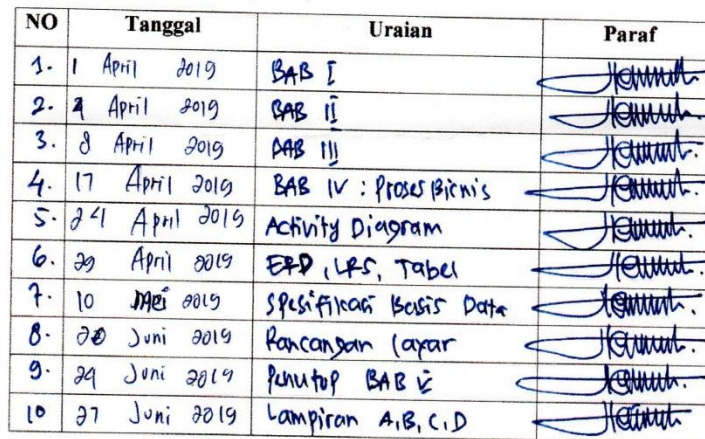 NO Tanggal Uraian Paraf
1. 1 April 2019 BAB I
2. 2 April 2019 BAB II
3. 8 April 2019 BAB III
4. 17 April 2019 BAB IV : Proses Bisnis
5. 24 April 2019 Activity Diagram
6. 29 April 2019 ERD, LRS, Tabel
7. 10 Mei 2019 Spesifikasi Basis Data
8. 20 Juni 2019 Rancangan Layar
9. 24 Juni 2019 Penutup BAB V
10 27 Juni 2019 Lampiran A,B,C,D